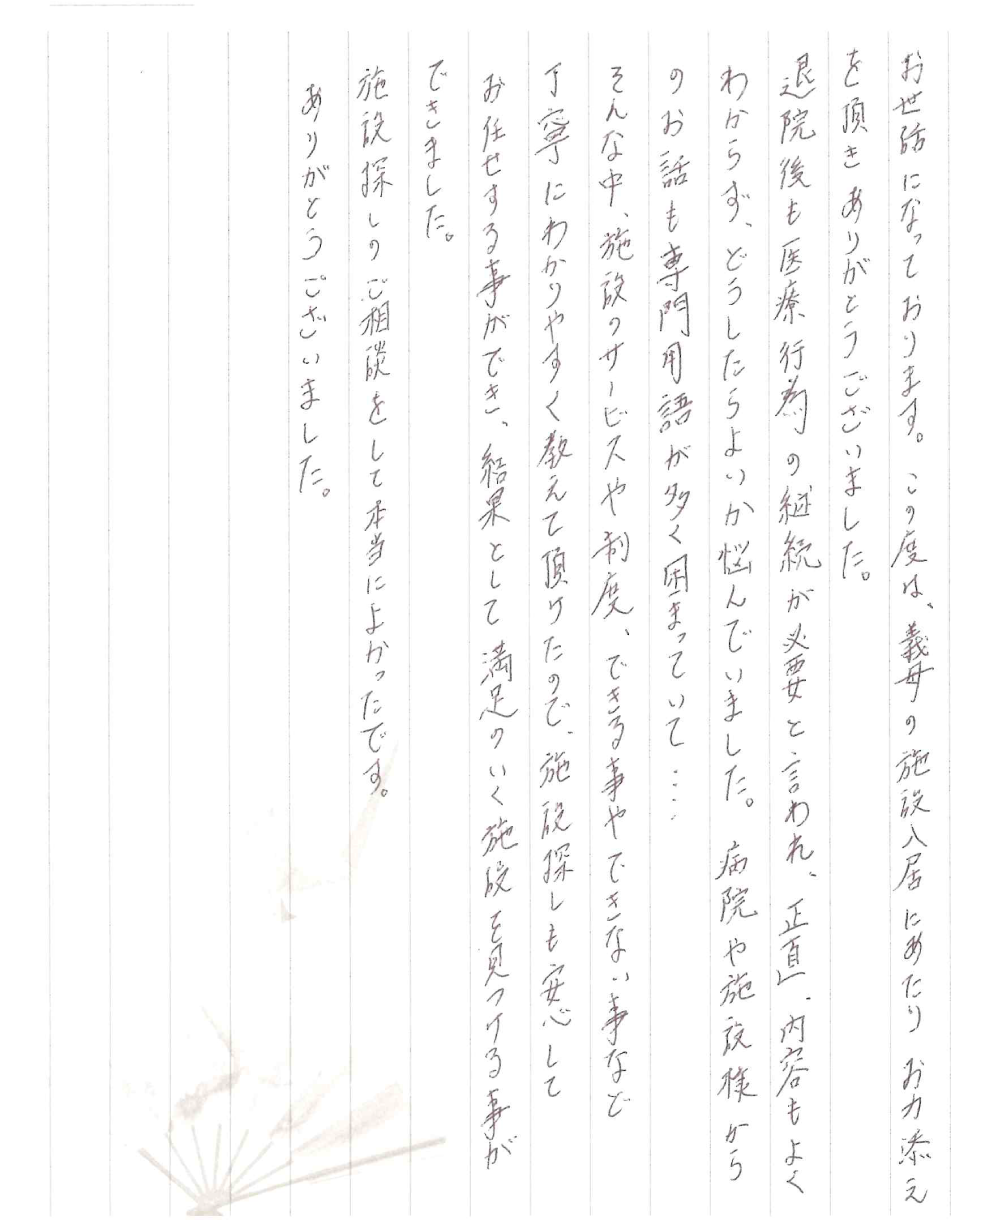 お世話になっております。この度は、義母の施設入居にあたりお力添え
を頂きありがとうございました。
退院後も医療行為の継続が必要と言われ、正直、内容もよく
わからず、どうしたらよいか悩んでいました。病院や施設様から
のお話も専門用語が多く困まっていて…
そんな中、施設のサービスや制度、できる事やできない事など
丁寧にわかりやすく教えて頂けたので、施設探しも安心して
お任せする事ができ、結果として満足のいく施設を見つける事が
できました。
施設探しのご相談をして本当によかったです。
ありがとうございました。